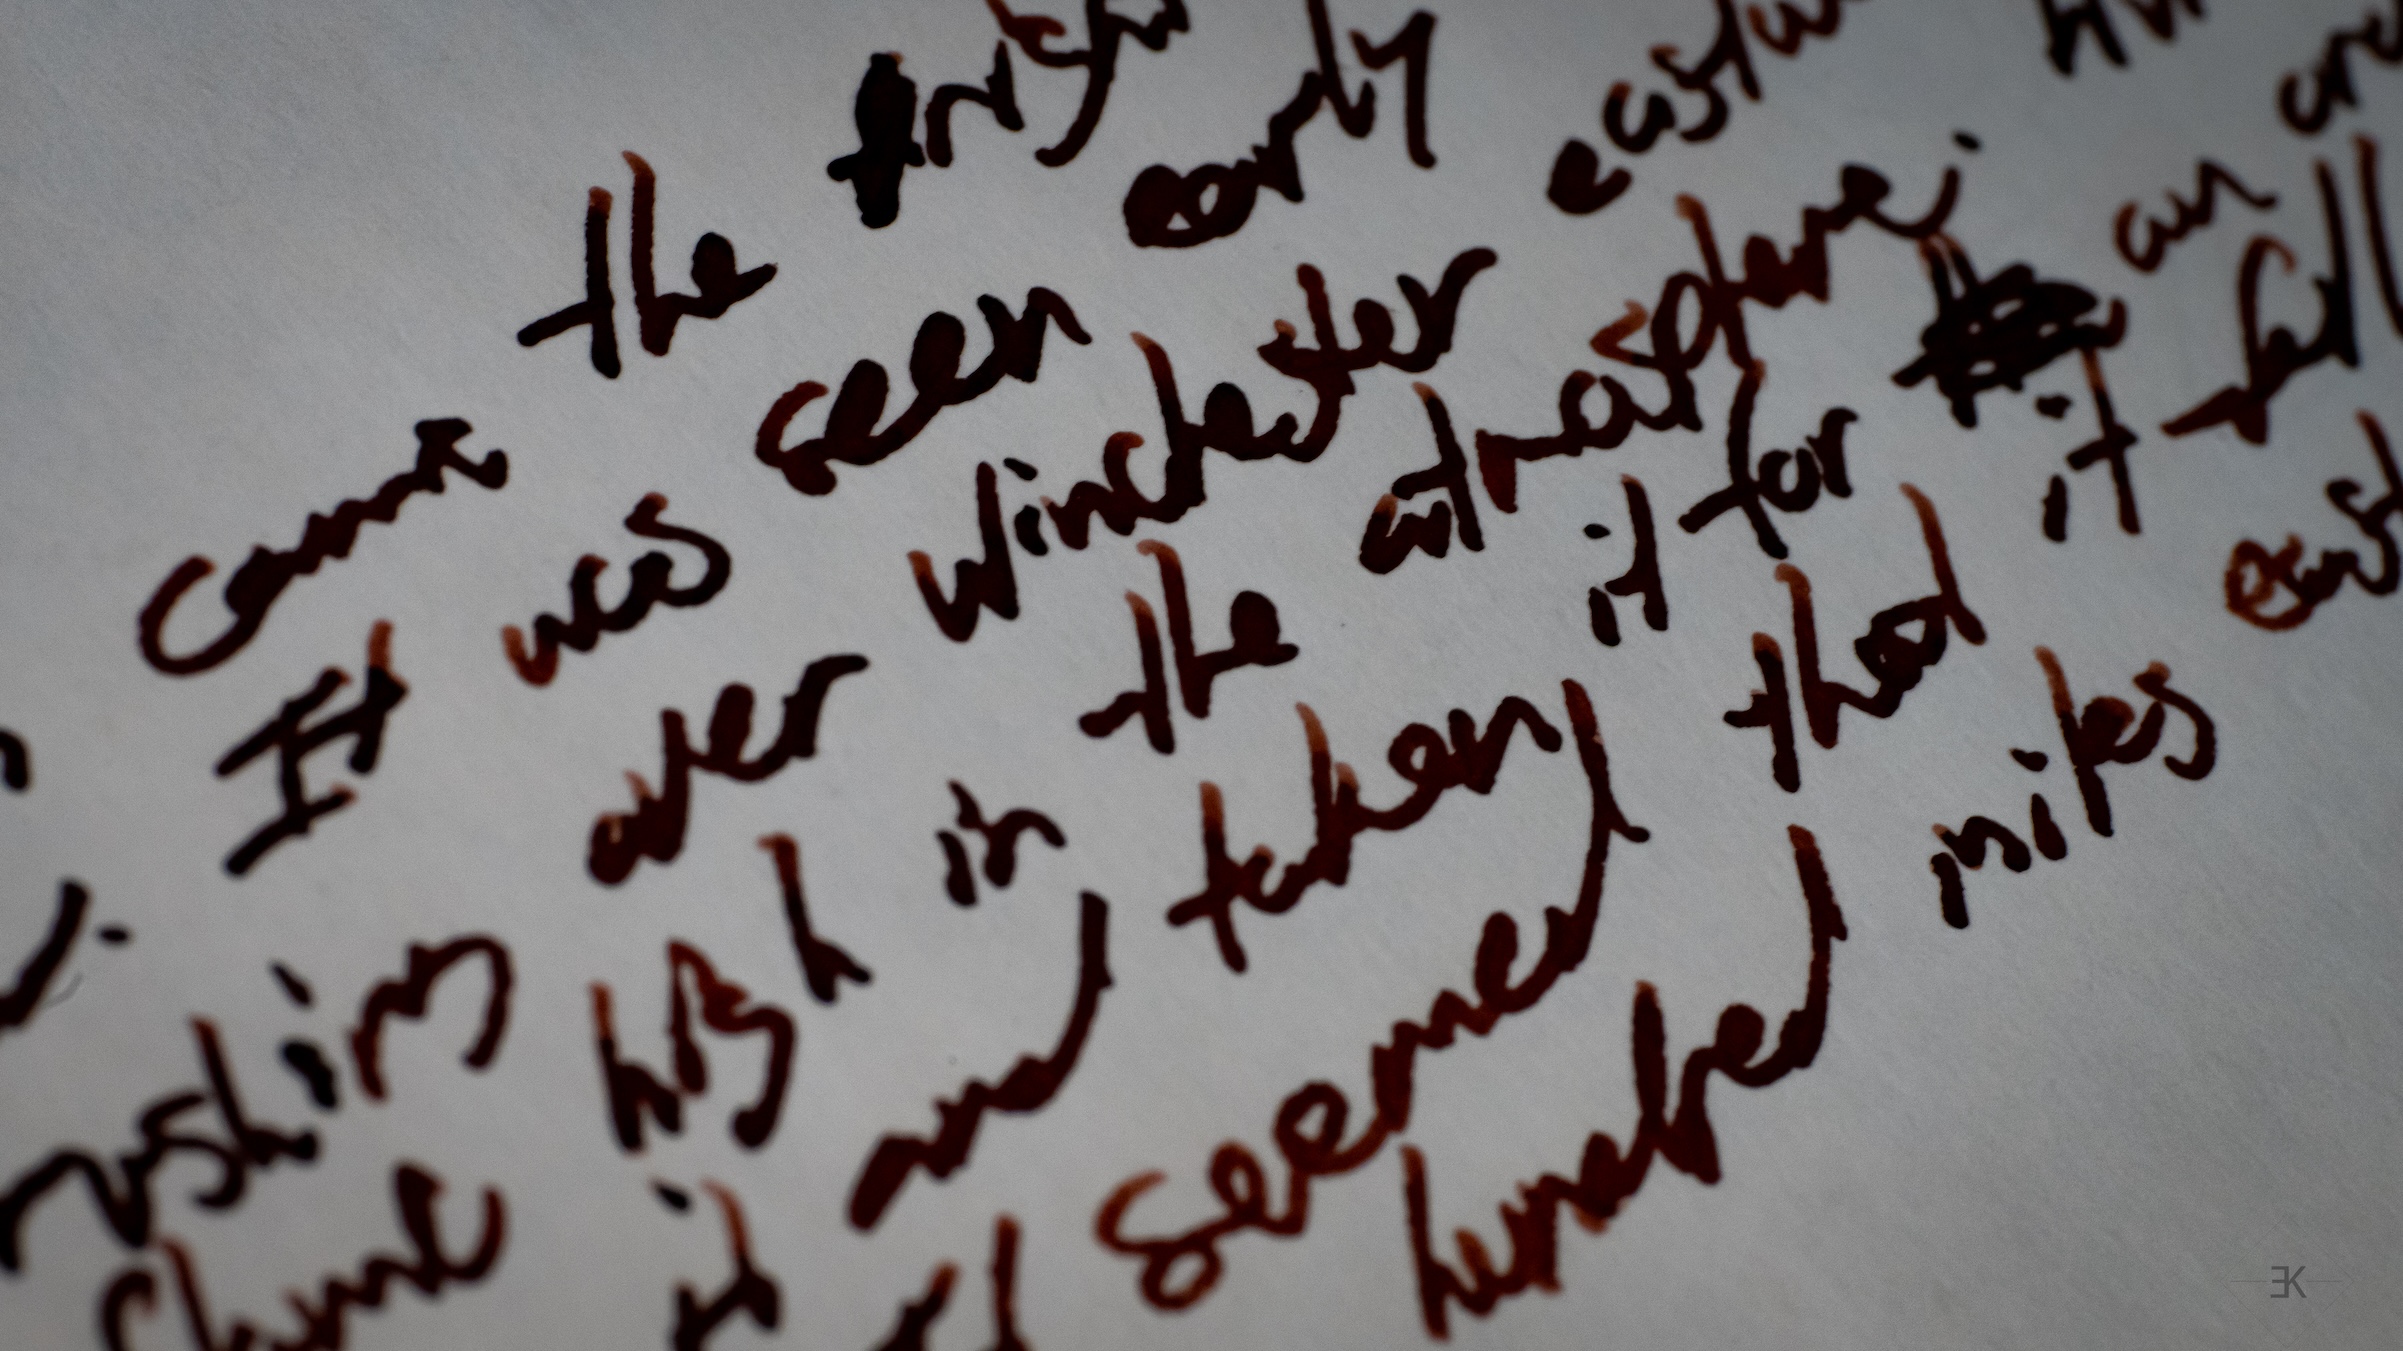 came the night
It was seen early
rushing over Winchester eastwar
flame high in the atmosphere. Hun
it and taken it for an
seemed that it fell
hundred miles east